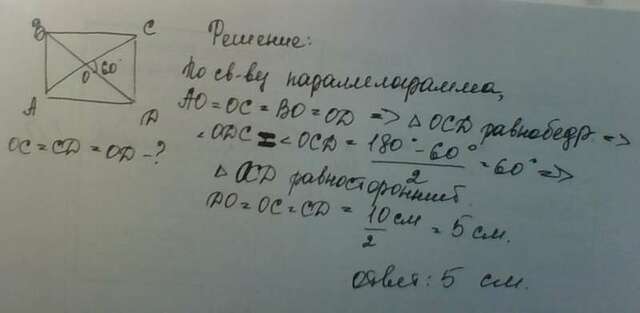 B C
O 60°
A D
OC = CD = OD - ?
Решение:
По св-ву параллелограмма,
AO = OC = BO = OD => △ OCD равнобедр. =>
< ODC = < OCD = 180° - 60° / 2 = 60° =>
△ OCD равносторонний.
DO = OC = CD = 10 см / 2 = 5 см.
ответ: 5 см.